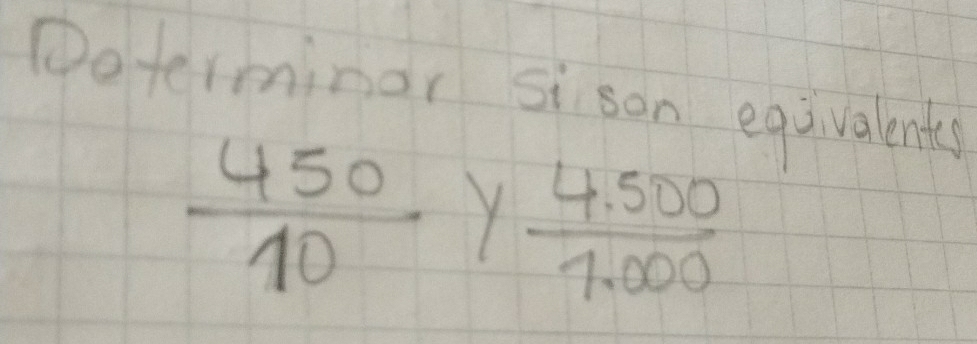 Determinar si son equivalentes
450/10 y 4.500/1.000